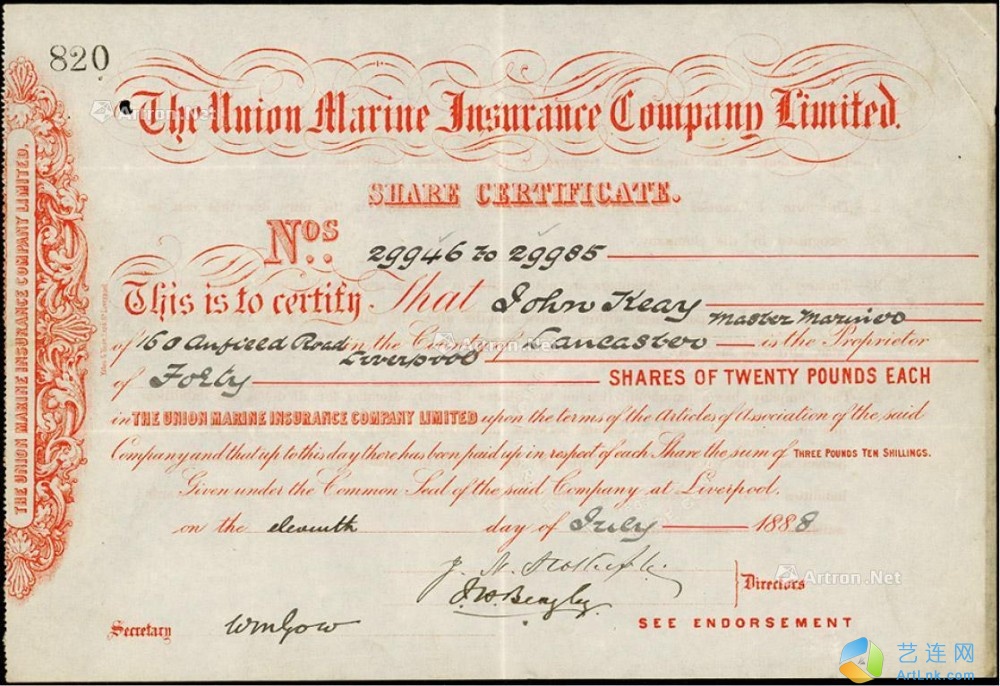 820
The Union Marine Insurance Company Limited.
SHARE CERTIFICATE.
Nos. 29946 to 29985
This is to certify That John Keay Master Mariner
of 160 Anfield Road Liverpool in the County of Lancaster is the Proprietor
of Forty SHARES OF TWENTY POUNDS EACH
in THE UNION MARINE INSURANCE COMPANY LIMITED upon the terms of the Articles of Association of the said
Company and that up to this day there has been paid up in respect of each Share the sum of THREE POUNDS TEN SHILLINGS.
Given under the Common Seal of the said Company at Liverpool,
on the eleventh day of July 1888
Directors
Secretary Wm Gow
SEE ENDORSEMENT
THE UNION MARINE INSURANCE COMPANY LIMITED.
Artron.Net
Artron.Net
Artron.Net
艺连网
ArtLnk.com